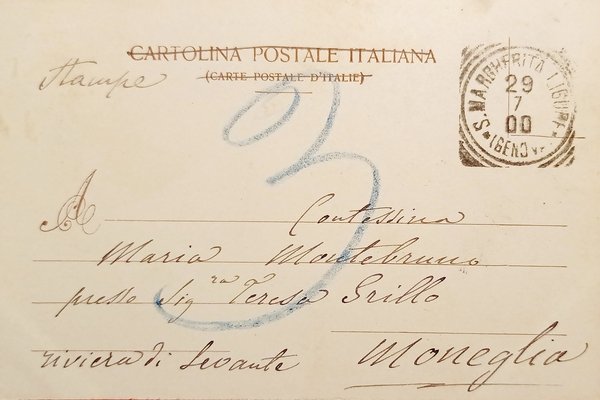 CARTOLINA POSTALE ITALIANA
(CARTE POSTALE D'ITALIE)
Stampe
S. MARGHERITA LIGURE
29
7
00
(GENOVA)
3
A
Contessina
Maria Montebruno
presso Sig.ra Teresa Grillo
riviera di Levante Moneglia